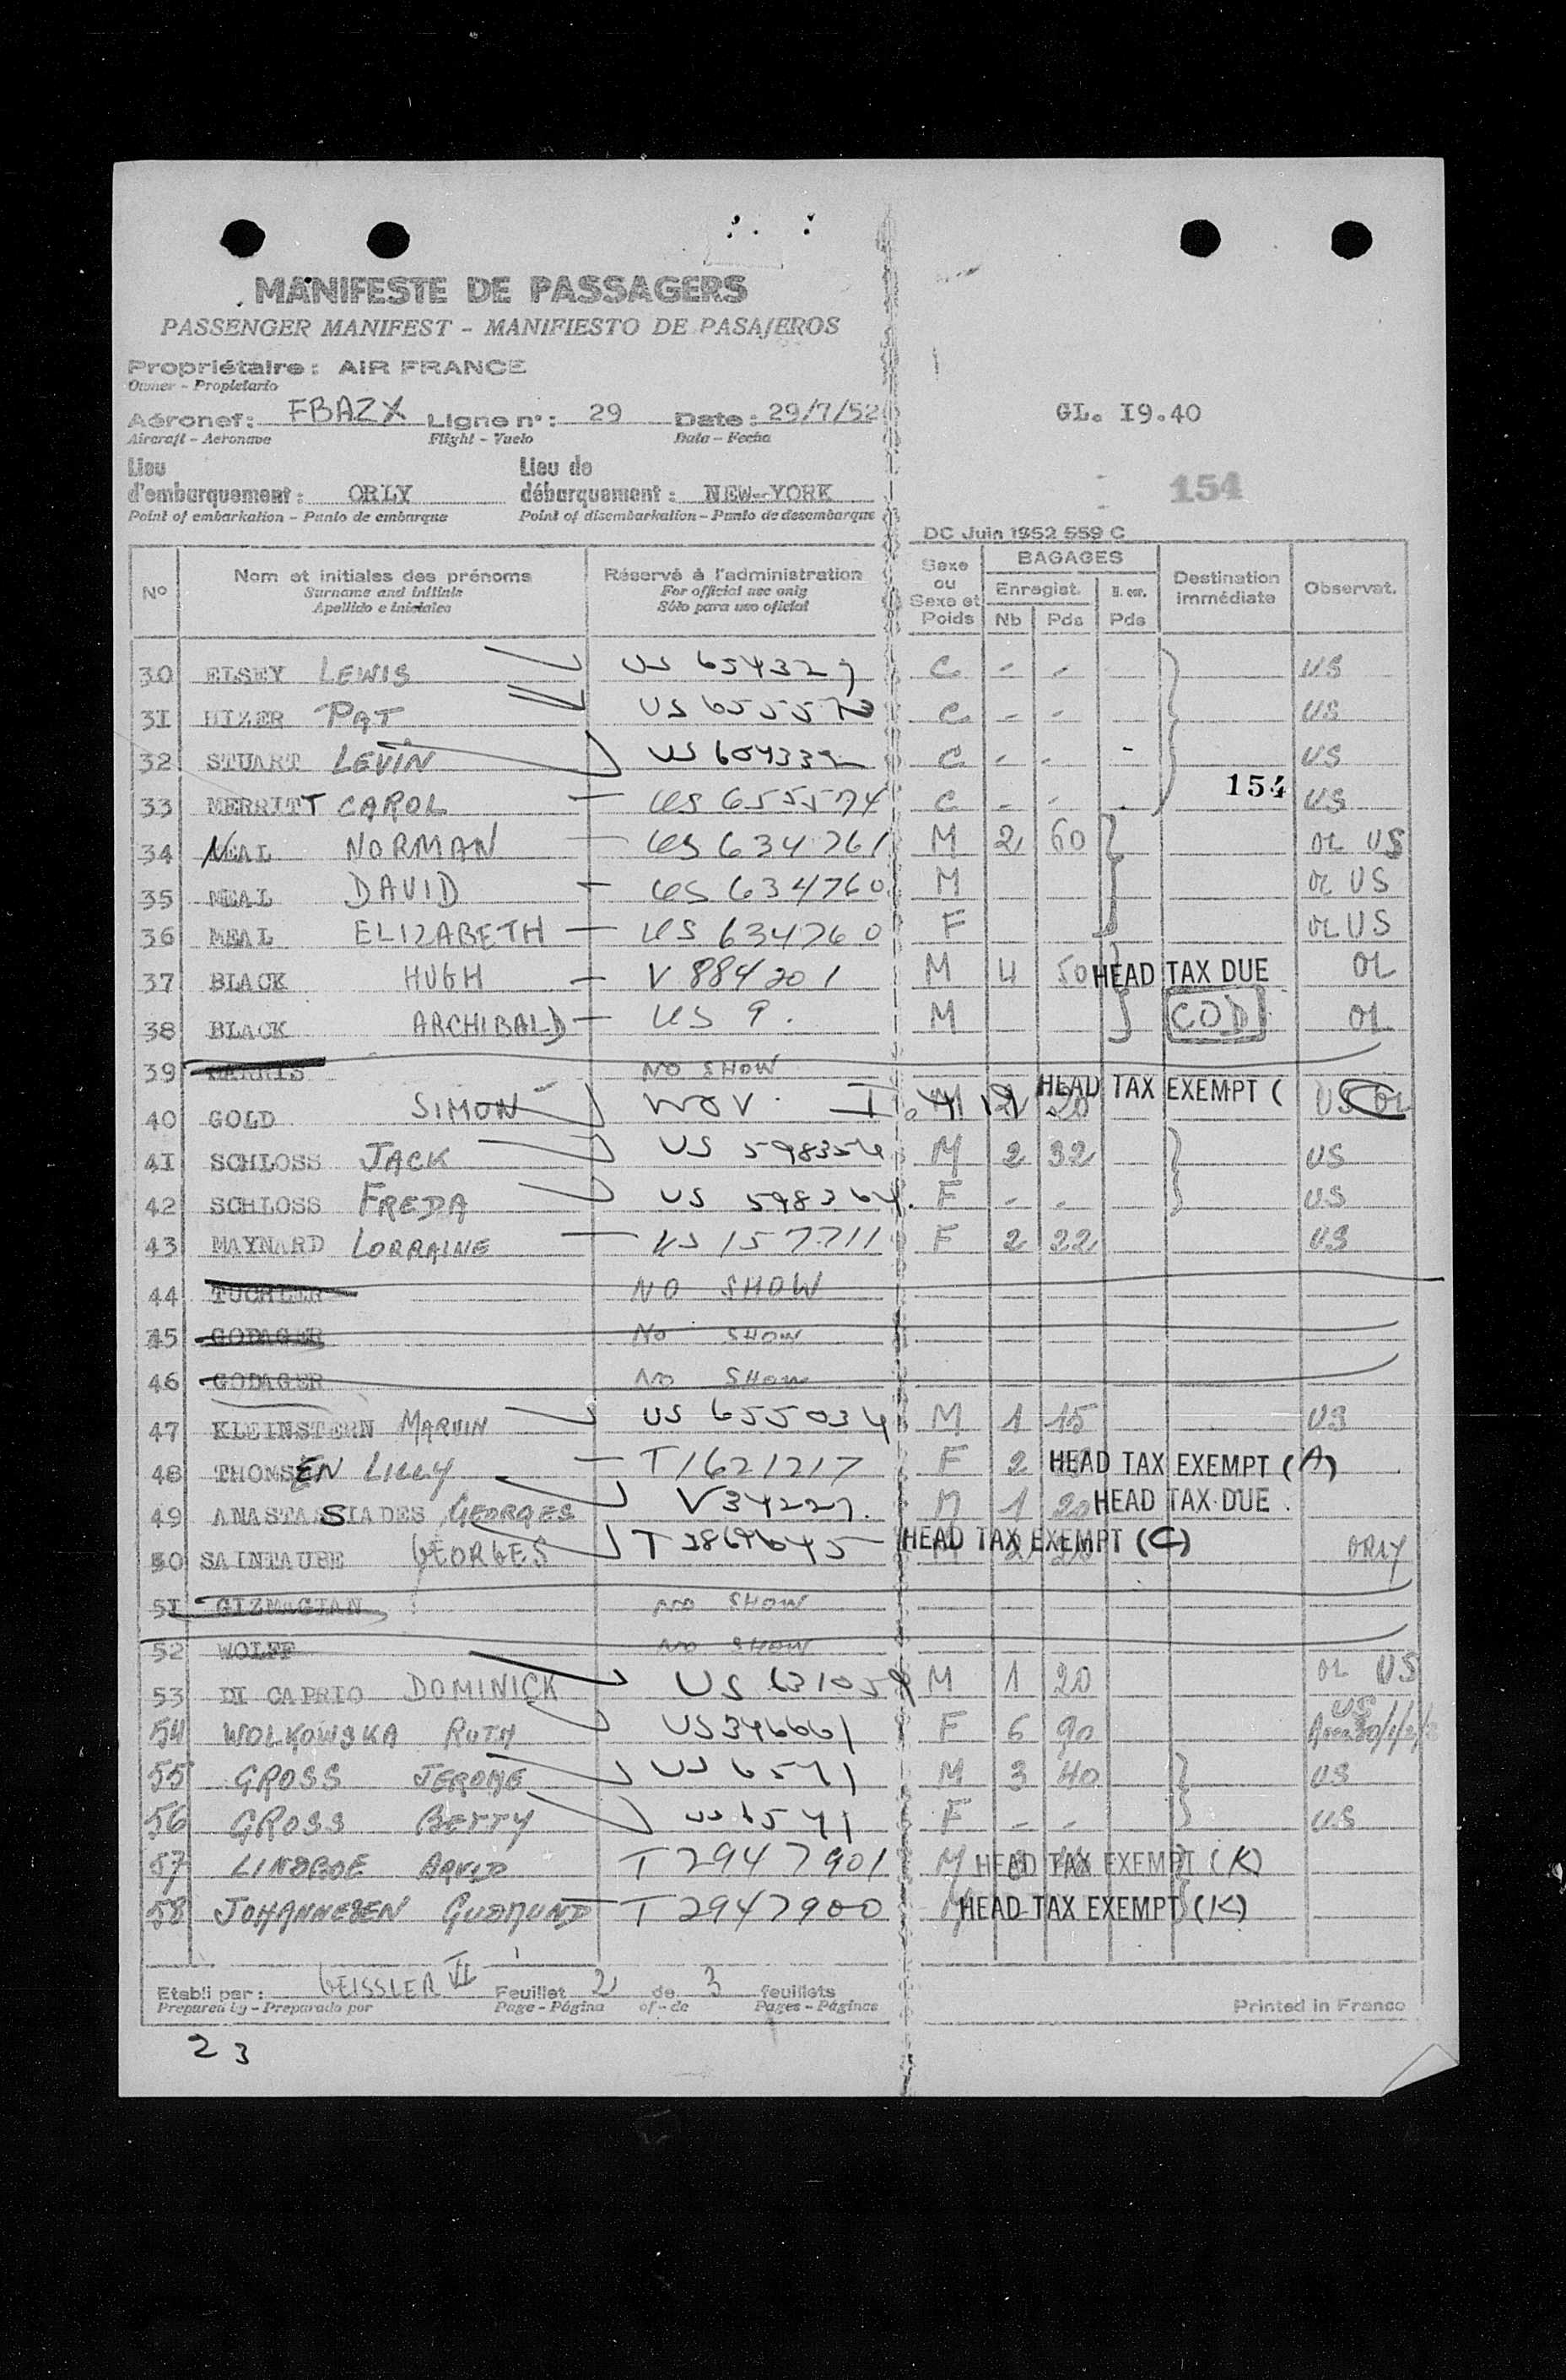 MANIFESTE DE PASSAGERS
PASSENGER MANIFEST - MANIFIESTO DE PASAJEROS
Propriétaire : AIR FRANCE
Owner - Propietario
Aéronef : FBAZX Ligne n° : 29 Date : 29/7/52
Aircraft - Aeronave Flight - Vuelo Data - Fecha
GL. I9.40
Lieu d'embarquement : ORLY Lieu de débarquement : NEW-YORK
Point of embarkation - Punto de embarque Point of disembarkation - Punto de desembarque
154
DC Juin 1952 559 C
N° Nom et initiales des prénoms Réservé à l'administration Sexe ou Sexe et Poids BAGAGES Destination immédiate Observat.
Surname and initials For official use only Enregist. N. enr.
Apellido e iniciales Sólo para uso oficial Nb Pds Pds
30 ELSEY LEWIS US 654327 C - - US
3I HIZER PAT US 65557 C - - US
32 STUART LEVIN US 604332 C - - - US
33 MERRITT CAROL US 655574 C - - 154 US
34 NEAL NORMAN US 634761 M 2 60 OL US
35 NEAL DAVID US 634760 M OL US
36 NEAL ELIZABETH US 634760 F OL US
37 BLACK HUGH V 884201 M 4 50 HEAD TAX DUE OL
38 BLACK ARCHIBALD US 9. M COD OL
39 HARRIS NO SHOW
40 GOLD SIMON M 2 20 HEAD TAX EXEMPT ( US OL
4I SCHLOSS JACK US 598364 M 2 32 US
42 SCHLOSS FREDA US 598364. F - - US
43 MAYNARD LORRAINE US 157711 F 2 22 US
44 TUCHLER NO SHOW
45 GODAGER NO SHOW
46 GODAGER NO SHOW
47 KLEINSTERN MARVIN US 655034 M 1 15 US
48 THOMSEN LILLY T1621217 F 2 HEAD TAX EXEMPT (A)
49 ANASTASSIADES GEORGES V34227. M 1 20 HEAD TAX DUE.
50 SAINTAUBE GEORGES T 2869645 HEAD TAX EXEMPT (C) ORLY
5I GIZMAGIAN NO SHOW
52 WOLFF NO SHOW
53 DI CAPRIO DOMINICK US 631059 M 1 20 OL US
54 WOLKOWSKA RUTH US346661 F 6 90 US
55 GROSS JEROME US 6541 M 3 40 US
56 GROSS BETTY US 6541 F - - US
57 LINDBOE ARVID T 2947901 M HEAD TAX EXEMPT (K)
58 JOHANNESEN GUDMUND T 2947900 M HEAD TAX EXEMPT (K)
Etabli par : GEISSLER VI Feuillet 2 de 3 feuillets
Prepared by - Preparado por Page - Página of - de Pages - Páginas Printed in France
23